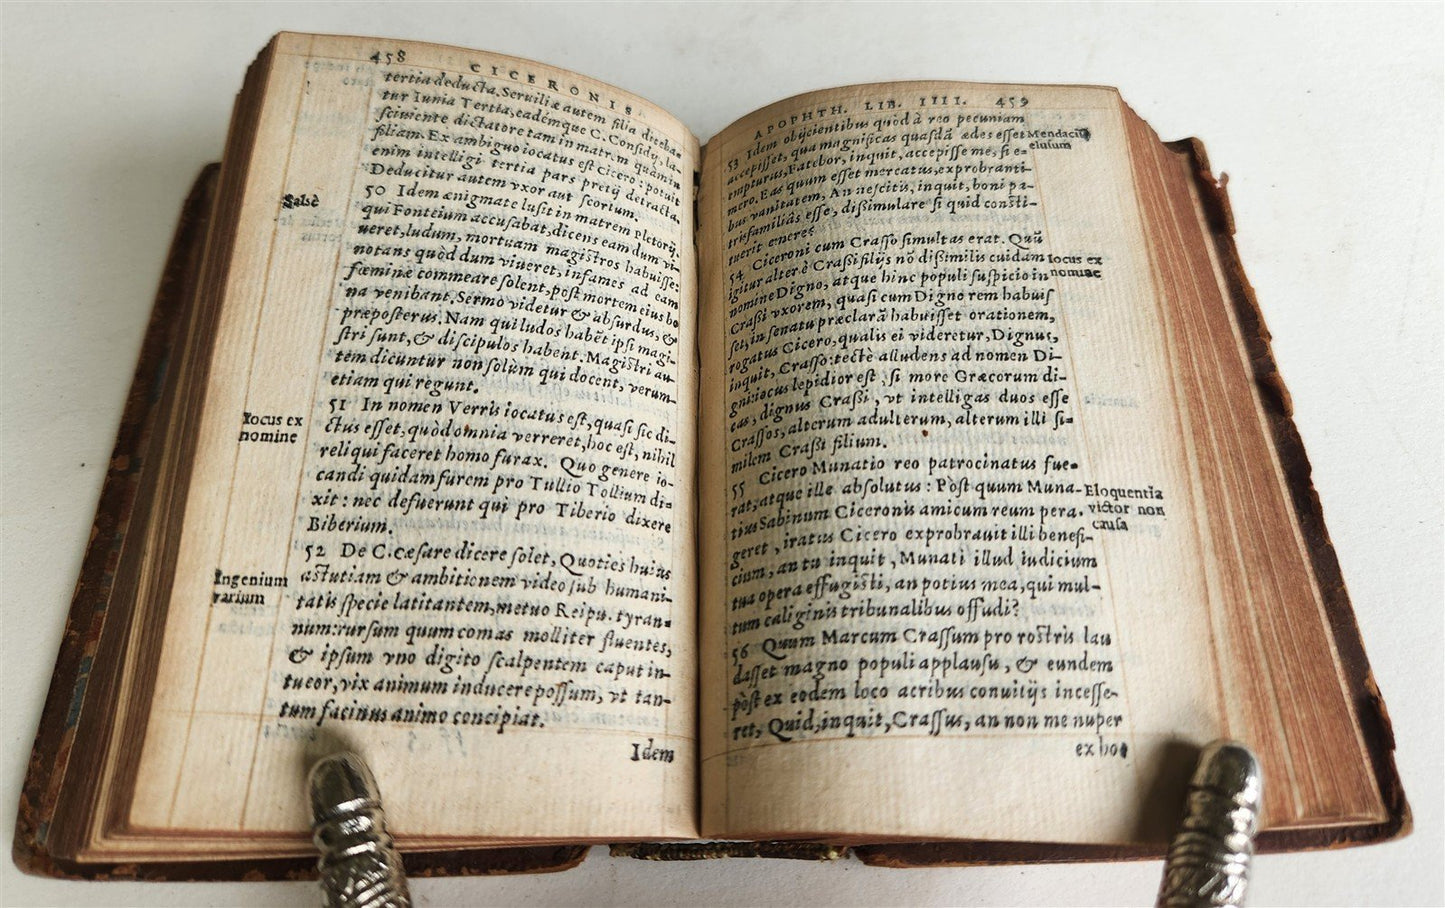 458
CICERONIS
tertia deducta. Seruiliæ autem filia diceba-
tur Iunia Tertia, eadémque C. Considij, la-
sciuiente dictatore tam in matrem quàm in
filiam. Ex ambiguo iocatus est Cicero: potuit
enim intelligi tertia pars pretij detracta.
Deducitur autem vxor aut scortum.
Salsè
50 Idem ænigmate lusit in matrem Pletorij,
qui Fonteium accusabat, dicens eam dum vi-
ueret, ludum, mortuam magistros habuisse:
notans quòd dum viueret, infames ad eam
fœminæ commeare solent, pòst mortem eius bo
na venibant. Sermo videtur & absurdus, &
præposterus. Nam qui ludos habēt ipsi magi-
stri sunt, & discipulos habent. Magistri au-
tem dicuntur non solùm qui docent, verum-
etiam qui regunt.
Iocus ex
nomine
51 In nomen Verris iocatus est, quasi sic di-
ctus esset, quòd omnia verreret, hoc est, nihil
reliqui faceret homo furax. Quo genere io-
candi quidam furem pro Tullio Tollium di-
xit: nec defuerunt qui pro Tiberio dixere
Biberium.
Ingenium
varium
52 De C. cæsare dicere solet, Quoties huius
astutiam & ambitionem video sub humani-
tatis specie latitantem, metuo Reipu. tyran-
num: rursum quum comas molliter fluentes,
& ipsum vno digito scalpentem caput in-
tueor, vix animum inducere possum, vt tan-
tum facinus animo concipiat.
Idem
APOPHTH. LIB. IIII. 459
53 Idem obijcientibus quòd à reo pecuniam
accepisset, qua magnificas quasdā ædes esset
Mendacij
elusum
empturus, Fatebor, inquit, accepisse me, si e-
mero. Eas quum esset mercatus, exprobranti-
bus vanitatem, An nescitis, inquit, boni pa-
trisfamiliâs esse, dissimulare si quid consti-
tuerit emere?
54 Ciceroni cum Crasso simultas erat. Quū
igitur alter è Crassi filijs nō dissimilis cuidam
Iocus ex
nomine
nomine Digno, atque hinc populi suspicio in
Crassi vxorem, quasi cum Digno rem habuis
set, in senatu præclarā habuisset orationem,
rogatus Cicero, qualis ei videretur, Dignus,
inquit, Crasso: tectè alludens ad nomen Di-
gni: iocus lepidior est, si more Græcorum di-
cas, dignus Crassi, vt intelligas duos esse
Crassos, alterum adulterum, alterum illi si-
milem Crassi filium.
55 Cicero Munatio reo patrocinatus fue-
rat, atque ille absolutus: Pòst quum Muna-
Eloquentia
victor non
causa
tius Sabinum Ciceronis amicum reum pera-
geret, iratus Cicero exprobrauit illi benefi-
cium, an tu inquit, Munati illud iudicium
tua opera effugisti, an potius mea, qui mul-
tum caliginis tribunalibus offudi?
56 Quum Marcum Crassum pro rostris lau
dasset magno populi applausu, & eundem
pòst ex eodem loco acribus conuitijs incesse-
ret, Quid, inquit, Crassus, an non me nuper
ex hoc